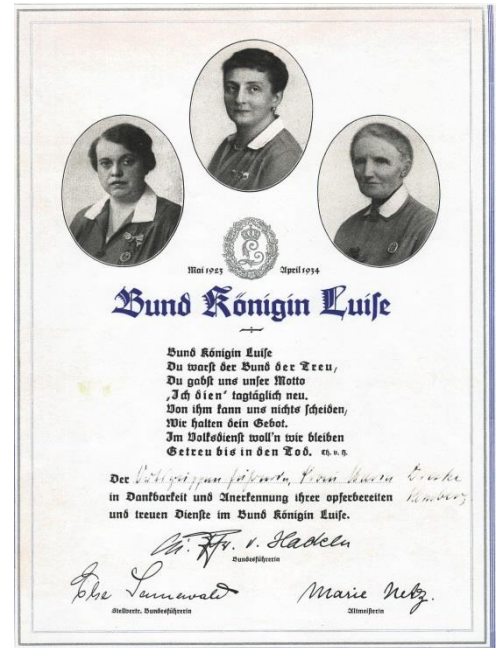 Mai 1923 April 1934
Bund Königin Luise
Bund Königin Luise
Du warst der Bund der Treu,
Du gabst uns unser Motto
„Ich dien‘ tagtäglich neu.
Von ihm kann uns nichts scheiden,
Wir halten dein Gebot.
Im Volksdienst woll'n wir bleiben
Getreu bis in den Tod. Ch. v. H.
Der
in Dankbarkeit und Anerkennung ihrer opferbereiten
und treuen Dienste im Bund Königin Luise.
v. Hadeln
Bundesführerin
Else Sennewald
Marie Netz.
Stellvertr. Bundesführerin
Altmeisterin